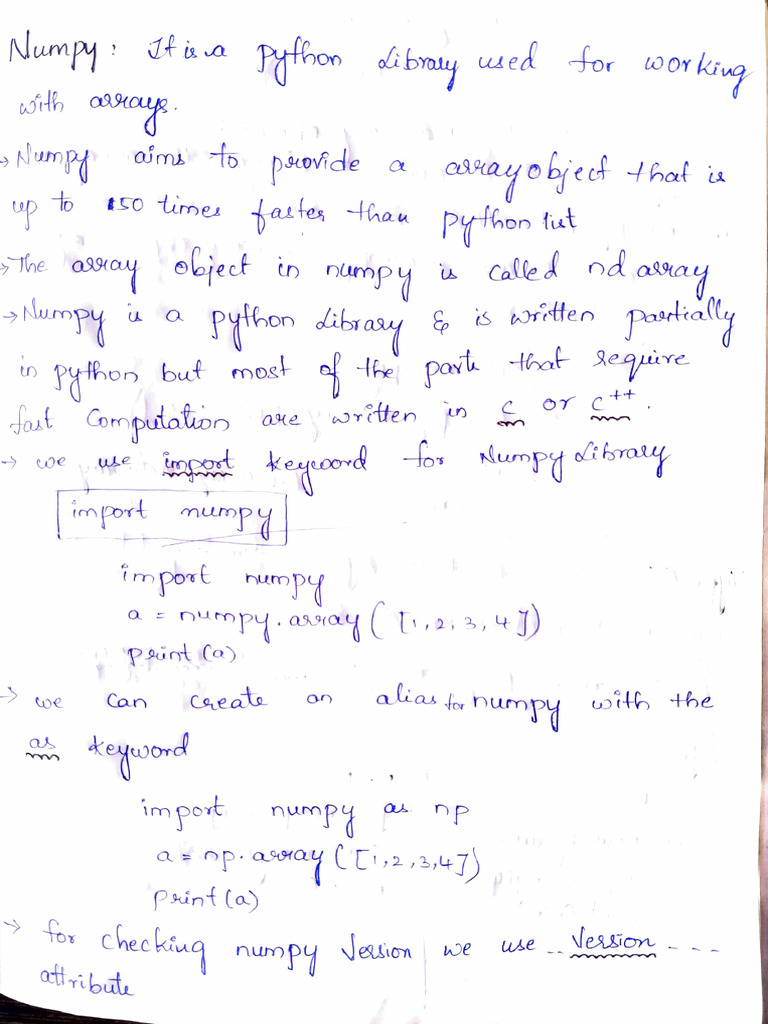 Numpy: It is a python Library used for working
with arrays.
→ Numpy aims to provide a array object that is
up to 50 times faster than python list
→ The array object in numpy is called nd array
→ Numpy is a python Library & is written partially
in python but most of the parts that require
fast computation are written in c or c++.
→ we use import keyword for Numpy Library
import numpy
import numpy
a = numpy.array([1,2,3,4])
print(a)
→ we can create an alias for numpy with the
as keyword
import numpy as np
a = np.array([1,2,3,4])
print(a)
→ for checking numpy version we use -- version ---
attribute